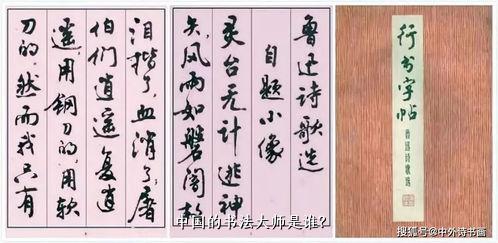 泪揩了,血消了;屠
伯们逍遥复逍
遥,用鋼刀的,用软
刀的。然而我只有
鲁迅诗歌选
自题小像
灵台无计逃神
矢,风雨如磐闇故
行书字帖
鲁迅诗歌选
中国的书法大师是谁?
搜狐号@中外诗书画